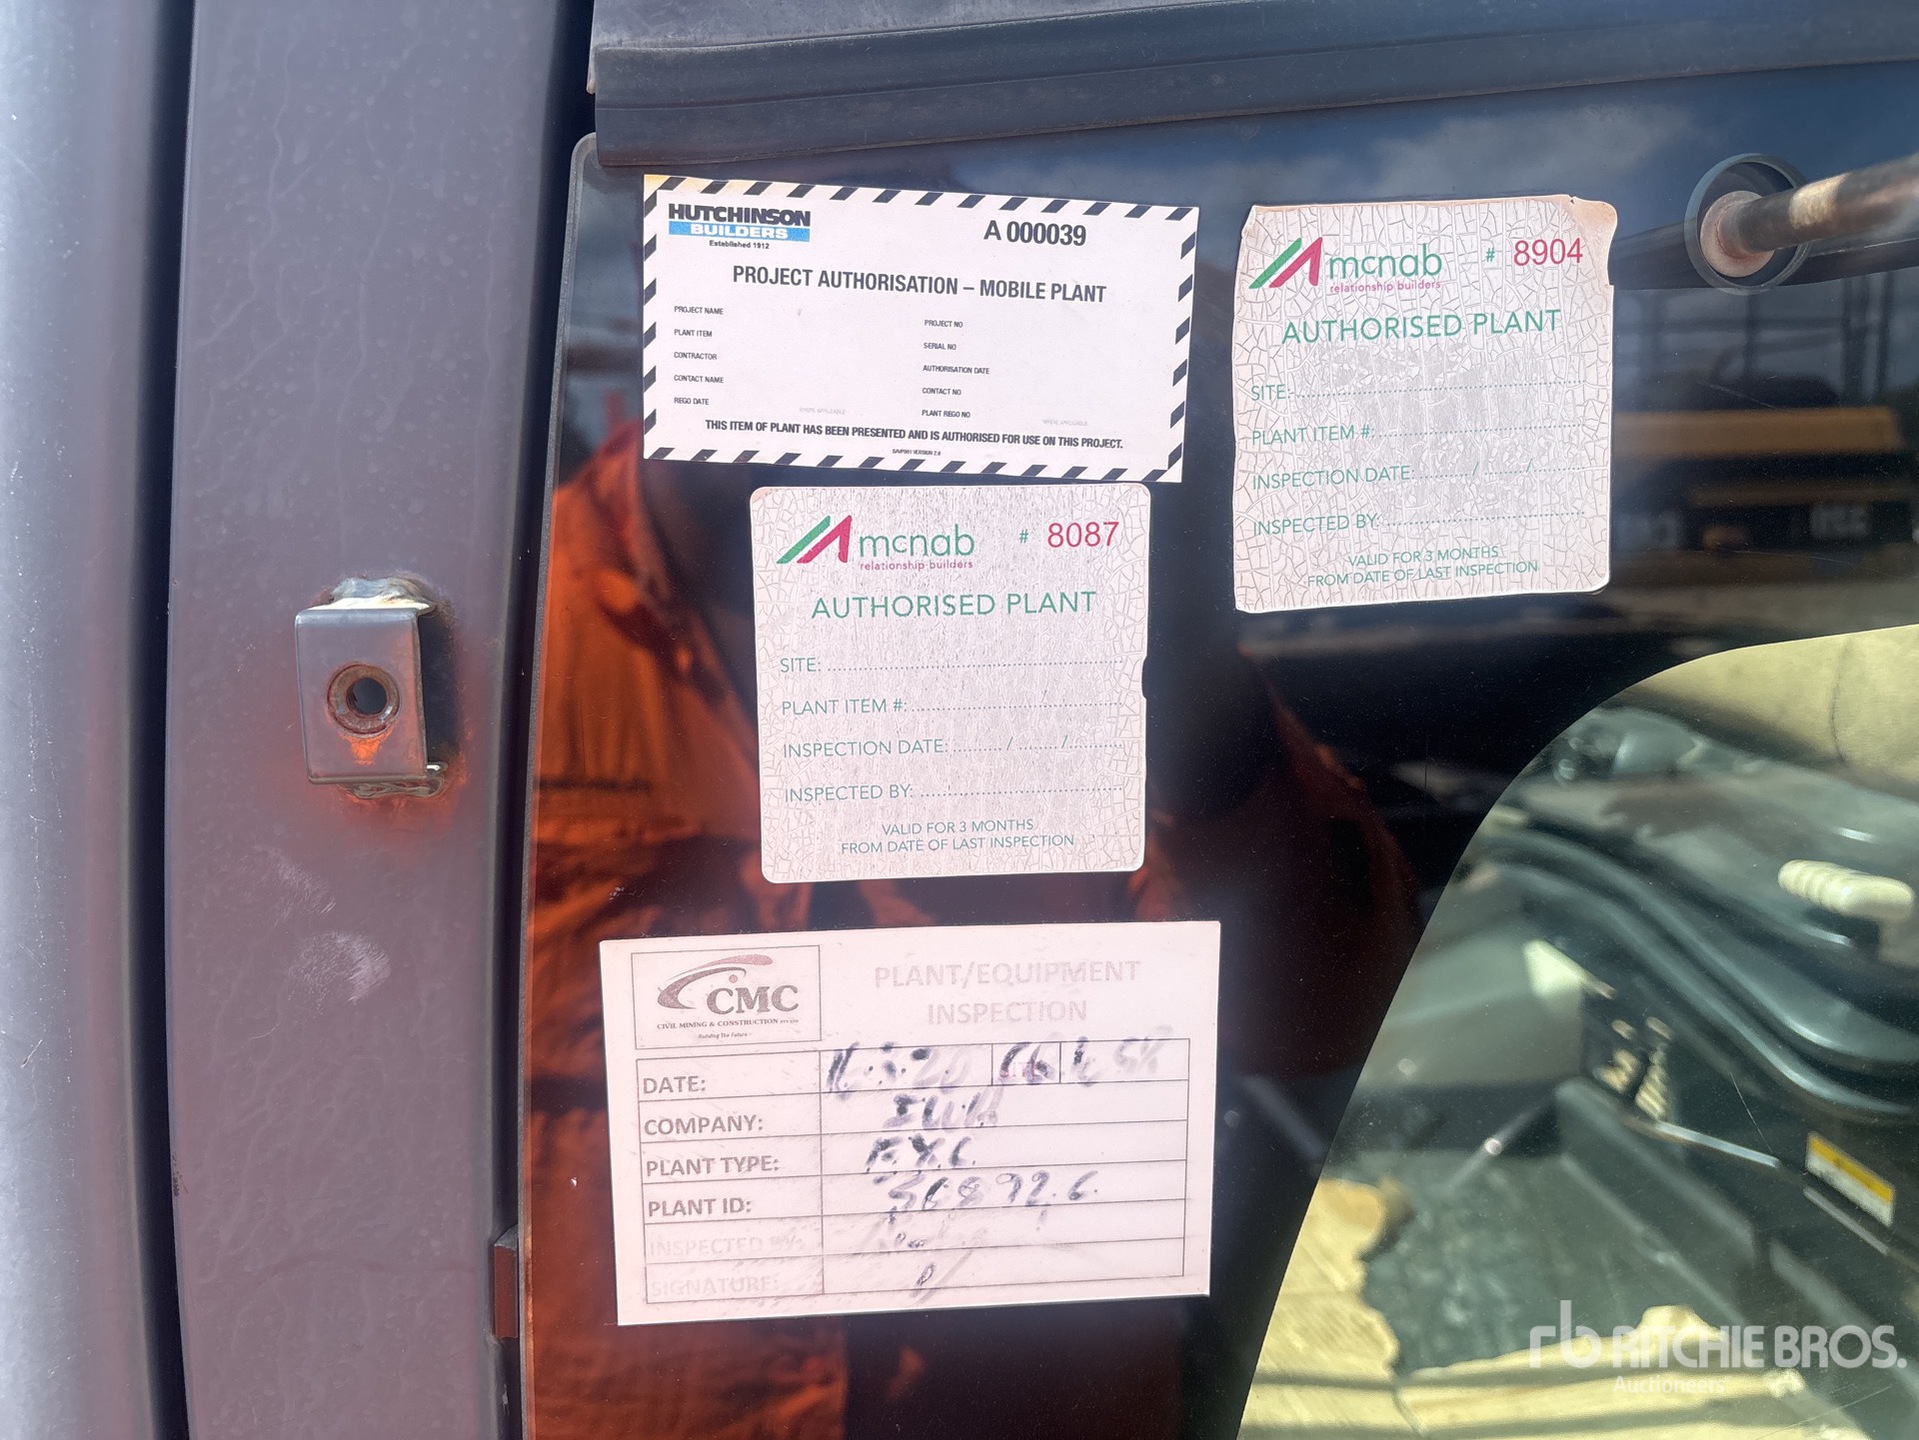 HUTCHINSON
BUILDERS
Established 1912
A 000039
PROJECT AUTHORISATION – MOBILE PLANT
PROJECT NAME
PROJECT NO
PLANT ITEM
SERIAL NO
CONTRACTOR
AUTHORISATION DATE
CONTACT NAME
CONTACT NO
REGO DATE
WHERE APPLICABLE
PLANT REGO NO
WHERE APPLICABLE
THIS ITEM OF PLANT HAS BEEN PRESENTED AND IS AUTHORISED FOR USE ON THIS PROJECT.
mcnab
relationship builders
# 8904
AUTHORISED PLANT
SITE:
PLANT ITEM #:
INSPECTION DATE: / /
INSPECTED BY:
VALID FOR 3 MONTHS
FROM DATE OF LAST INSPECTION
mcnab
relationship builders
# 8087
AUTHORISED PLANT
SITE:
PLANT ITEM #:
INSPECTION DATE: / /
INSPECTED BY:
VALID FOR 3 MONTHS
FROM DATE OF LAST INSPECTION
CMC
CIVIL MINING & CONSTRUCTION PTY LTD
Building The Future
PLANT/EQUIPMENT
INSPECTION
DATE:
COMPANY:
PLANT TYPE: EXC
PLANT ID:
INSPECTED BY:
SIGNATURE:
rb RITCHIE BROS.
Auctioneers